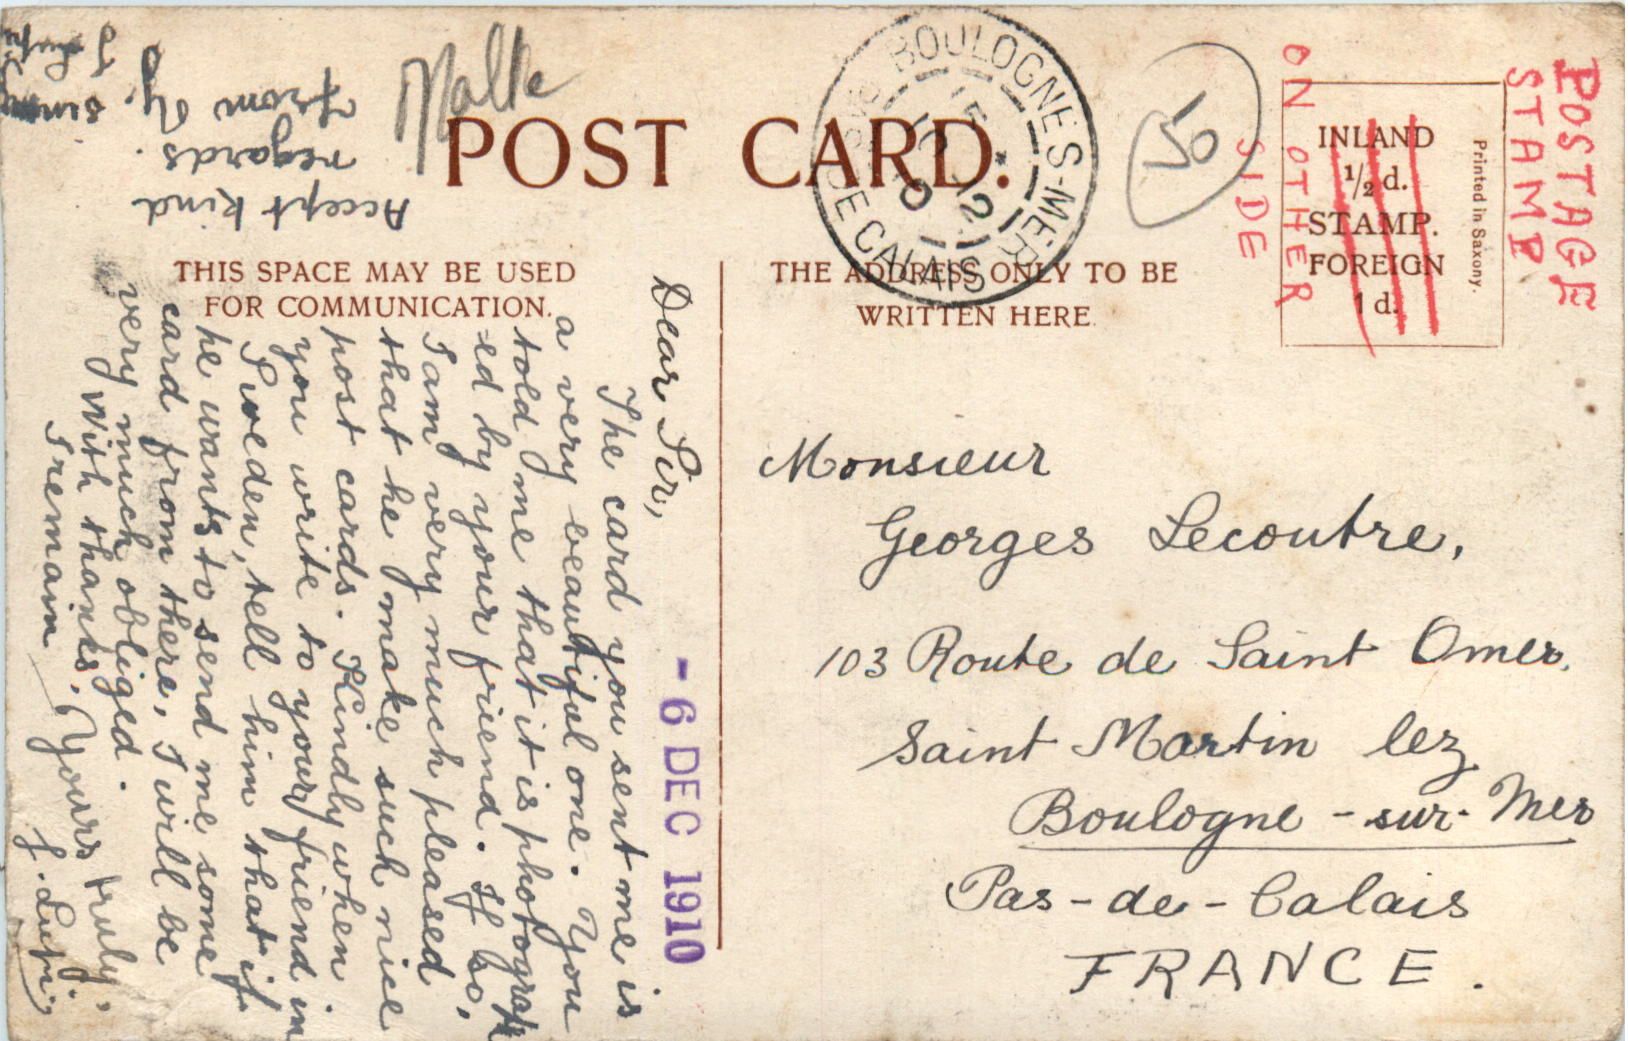 Malte
POST CARD.
BOULOGNE-S-MER
PAS DE CALAIS
50
INLAND
1/2 d.
STAMP.
FOREIGN
1 d.
Printed in Saxony.
POSTAGE
STAMP
ON OTHER
SIDE
THIS SPACE MAY BE USED
FOR COMMUNICATION.
THE ADDRESS ONLY TO BE
WRITTEN HERE.
- 6 DEC 1910
Dear Sir,
The card you sent me is
a very beautiful one. You
told me that it is photograph
-ed by your friend. If so,
I am very much pleased
that he make such nice
post cards. Kindly when
you write to your friend in
Sweden, tell him that if
he wants to send me some
card from there, I will be
very much obliged.
With thanks. Yours truly,
I remain
Accept kind
regards.
from
Monsieur
Georges Lecoutre,
103 Route de Saint Omer.
Saint Martin lez
Boulogne-sur-Mer
Pas-de-Calais
FRANCE.